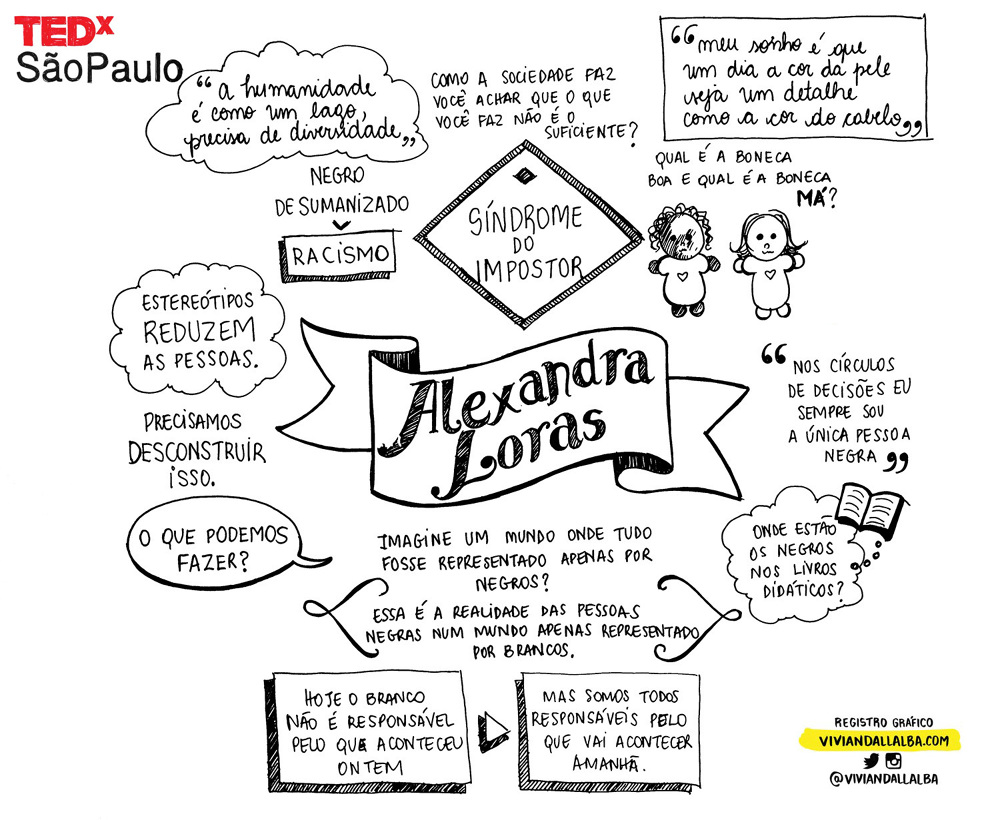 TEDx
SãoPaulo
“a humanidade
é como um lago,
precisa de diversidade„
COMO A SOCIEDADE FAZ
VOCÊ ACHAR QUE O QUE
VOCÊ FAZ NÃO É O
SUFICIENTE?
“meu sonho é que
um dia a cor da pele
seja um detalhe
como a cor do cabelo„
NEGRO
DESUMANIZADO
RACISMO
SÍNDROME
DO
IMPOSTOR
QUAL É A BONECA
BOA E QUAL É A BONECA
MÁ?
ESTEREÓTIPOS
REDUZEM
AS PESSOAS.
PRECISAMOS
DESCONSTRUIR
ISSO.
Alexandra
Loras
“NOS CÍRCULOS
DE DECISÕES EU
SEMPRE SOU
A ÚNICA PESSOA
NEGRA„
O QUE PODEMOS
FAZER?
ONDE ESTÃO
OS NEGROS
NOS LIVROS
DIDÁTICOS?
IMAGINE UM MUNDO ONDE TUDO
FOSSE REPRESENTADO APENAS POR
NEGROS?
ESSA É A REALIDADE DAS PESSOAS
NEGRAS NUM MUNDO APENAS REPRESENTADO
POR BRANCOS.
HOJE O BRANCO
NÃO É RESPONSÁVEL
PELO QUE ACONTECEU
ONTEM
MAS SOMOS TODOS
RESPONSÁVEIS PELO
QUE VAI ACONTECER
AMANHÃ.
REGISTRO GRÁFICO
VIVIANDALLALBA.COM
@VIVIANDALLALBA